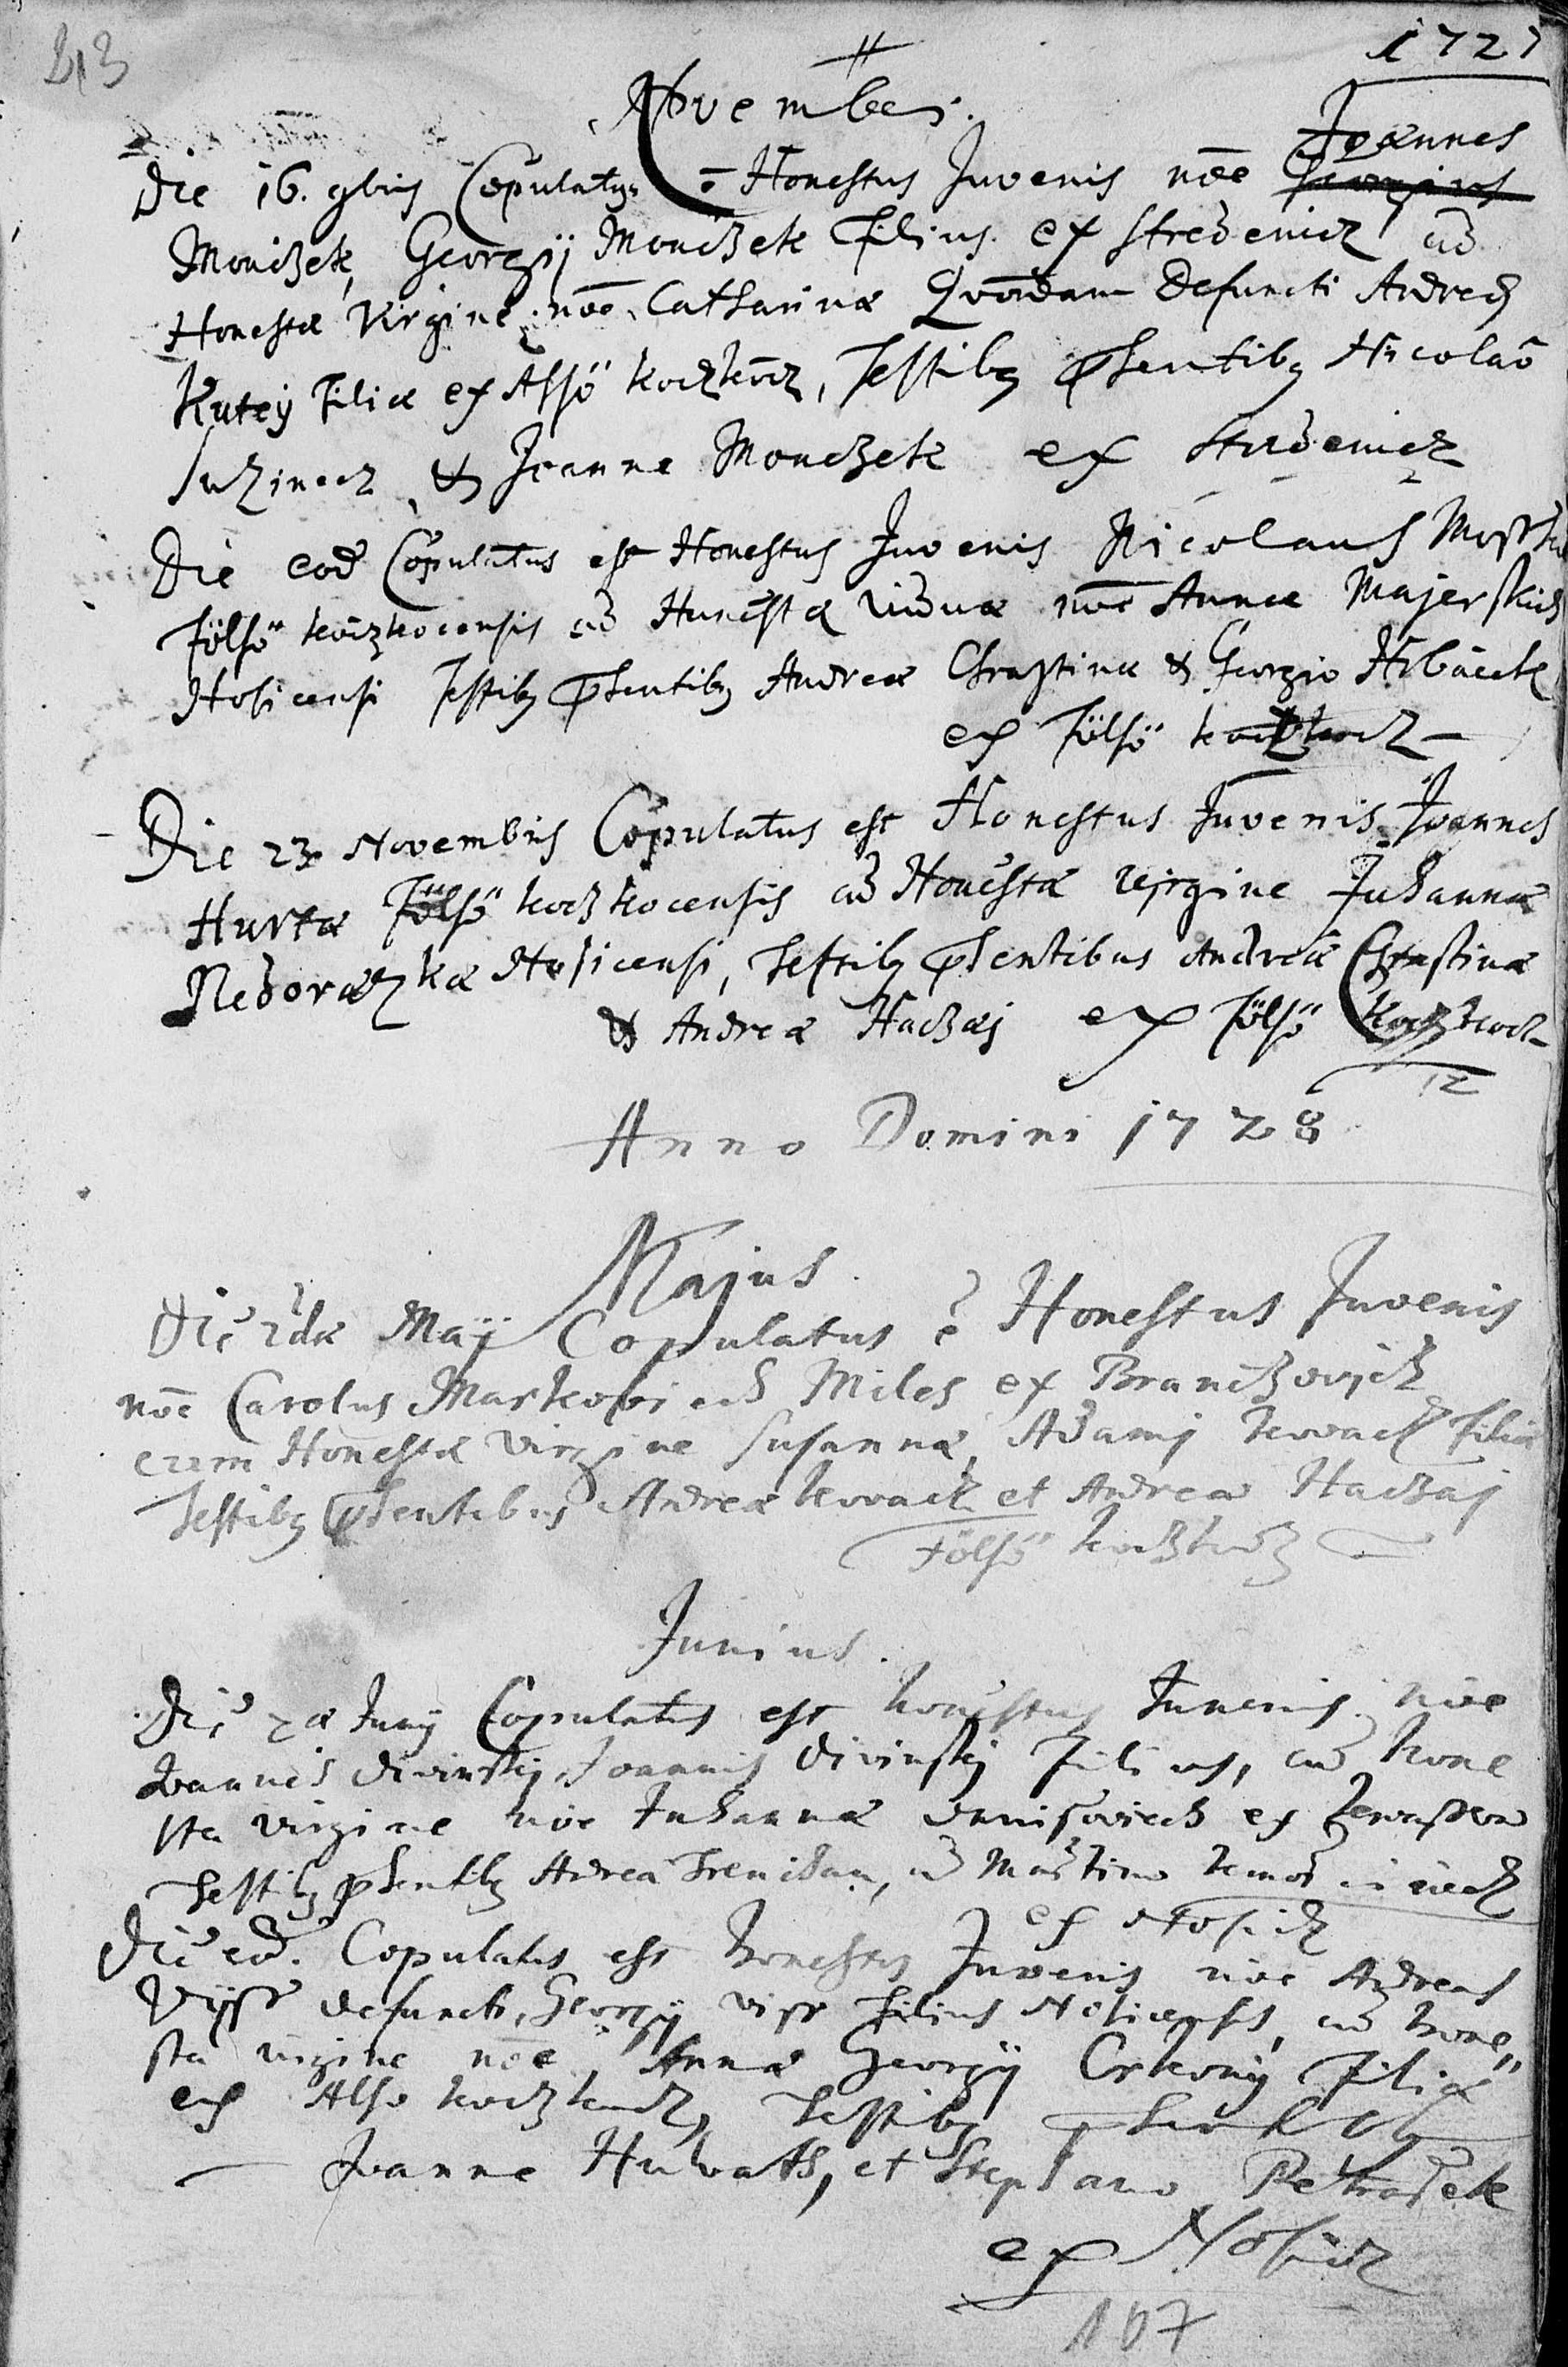 213
1727
November.
Joannes
Die 16. 9bris Copulatus ē Honestus Juvenis nōe Georgius
Monczek, Georgÿ Monczek Filius ex Stredenicz cū
Honesta Virgine nōe Catharina Quondam Defuncti Andreæ
Kutej Filia ex Alsö koczkocz, Testibq pñsentibq Nicolao
& Joanne Monczek ex Studenicz
Die eod Copulatus est Honestus Juvenis Nicolaus
Fölsö koczkocensis cū Honesta vidua nōe Anna Majerskich
Nosicensi Testibq pñsentibq Andrea Chrastina & Georgio Hrbacek
ex Fölsö koczkocz
Die 23 Novembris Copulatus est Honestus Juvenis Joannes
Hurta Fölsö koczkocensis cū Honesta virgine Juhanna
Nedorazka Nosicensi, Testibq pñsentibus Andrea Chrastina
& Andrea Haczaj ex Fölsö koczkocz
12
Anno Domini 1728
Majus.
Die 2da Maÿ Copulatus ē Honestus Juvenis
nōe Carolus Miles ex
cum Honesta virgine Susanna, Adamj kovacz Filia
Testibq pñsentibus Andrea kovacz et Andrea Haczaj
Fölsö koczkocz
Junius.
Die Junÿ Copulatus est honestus Juvenis nōe
Joannes Divinskj, Joannis Divinskj Filius, cū hone
sta virgine nōe Juhanna ex
Testibq pñsentibq Andrea cū Martino
ex Nosicz
Die eod. Copulatus est honestus Juvenis nōe Andreas
defuncti Georgÿ Filius Nosicensis, cū hone„
sta virgine nōe Anna Georgÿ Crkonÿ Filia
ex Also koczkocz, Testibq
Joanne Hulvath, et Stephano
ex Nosicz
107